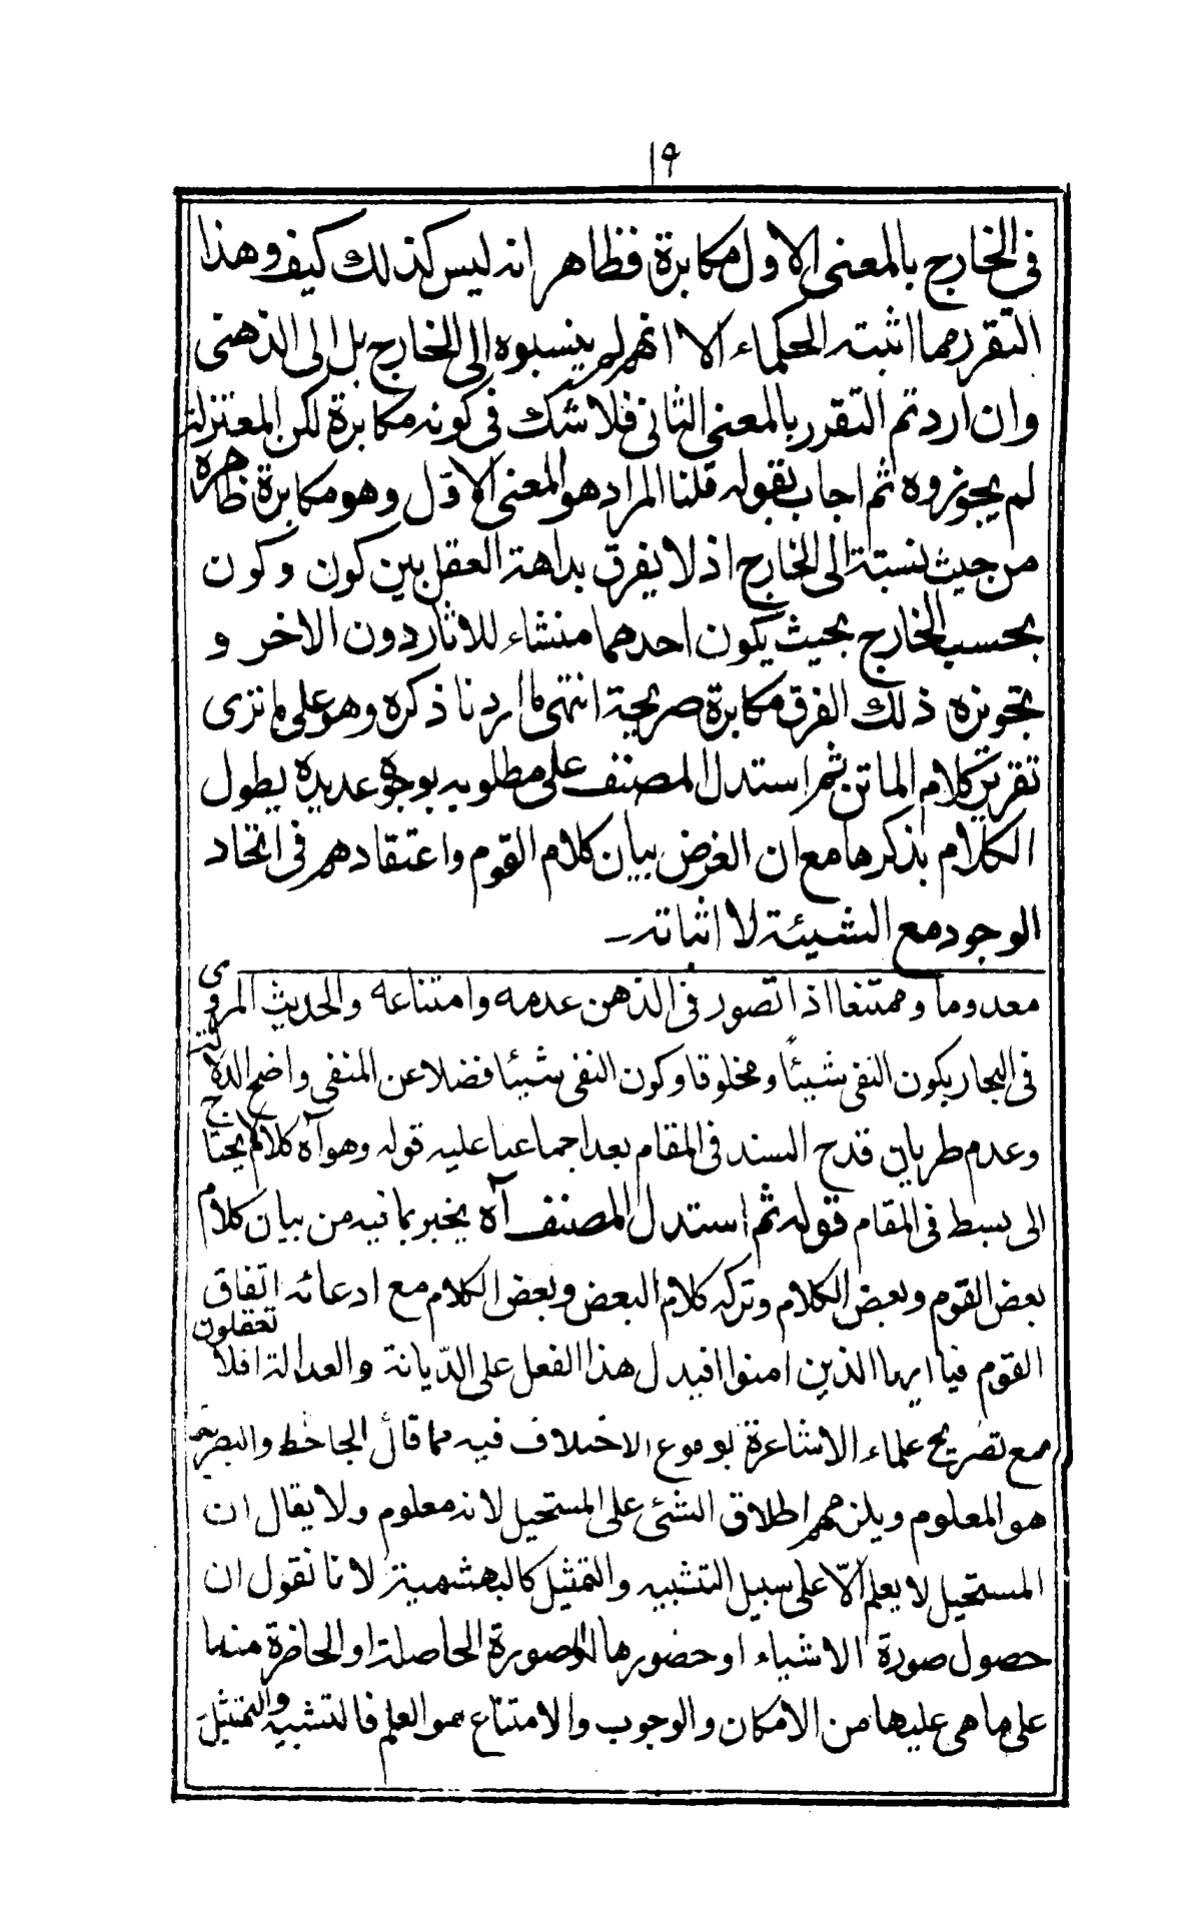 ١٩
في الخارج بالمعنى الاول مكابرة فظاهر انه ليس كذلك كيف وهذا
التقرر مما اثبته الحكماء الا انهم لم ينسبوه الى الخارج بل الى الذهنى
وان اردتم التقرر بالمعنى الثانى فلا شك فى كونه مكابرة لكن المعتزلة
لم يجوزوه ثم اجاب بقوله قلنا المراد هو المعنى الاوّل وهو مكابرة ظاهرة
من حيث نسبتة الى الخارج اذ لا يفرق بداهة العقل بين كون وكون
بحسب الخارج بحيث يكون احدهما منشاء للاثار دون الاخر و
تجويزه ذلك الفرق مكابرة صريحة انتهى ما اردنا ذكره وهو على ما نرى
تقرير كلام الماتن ثم استدل المصنف على مطلوبه بوجوه عديده يطول
الكلام بذكرها مع ان الغرض بيان كلام القوم واعتقادهم فى اتحاد
الوجود مع الشيئة لا اثباته
معدوما وممتنعا اذا تصور فى الذهن عدمه وامتناعه والحديث المروى
فى البحار يكون النفى شيئاً ومخلوقا وكون النفى شيئا فضلا عن المنفى واضح الدلالة
وعدم طريان قدح السند فى المقام بعد اجماعنا عليه قوله وهو آه كلام يحتاج
الى بسط فى المقام قوله ثم استدل المصنف آه يخبر بما فيه من بيان كلام
بعض القوم وبعض الكلام وتركه كلام البعض وبعض الكلام مع ادعائه اتفاق
القوم فيا ايها الذين امنوا افيدل هذا الفعل على الدّيانة والعدالة افلا تعقلون
مع تصريح علماء الاشاعرة بوقوع الاختلاف فيه مما قال الجاحظ والبصرية
هو المعلوم ويلزمهم اطلاق الشئ على المستحيل لانه معلوم ولا يقال ان
المستحيل لا يعلم الاّ على سبيل التشبيه والتمثيل كالبهشمية لانا نقول ان
حصول صورة الاشياء او حضورها او الصورة الحاصلة او الحاضرة منها
على ما هى عليها من الامكان والوجوب والامتناع هو العلم فالتشبيه والتمثيل